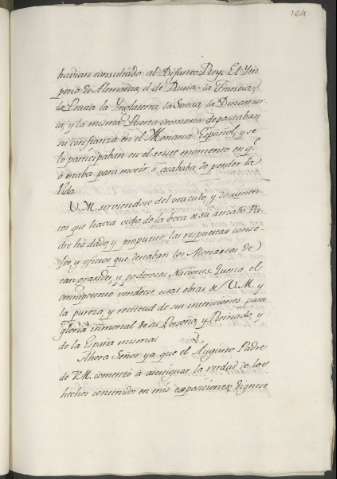 164
havian consultado al Difunto Rey. El Ym
perio de Alemania, el de Rusia, la Francia,
la Prusia la Ynglaterra, la Suecia, la Dinamar
ca, y la misma Puerta Ottomana depositaban
su confianza en el Monarca Español, y se
lo participaban en el triste momento en qe
ò estaba para morir ò acababa de perder la
Vida.
V.M. sirviendose del oraculo, y documen
tos que havia oido de la boca a su Augusto Pa
dre ha dado, y
y oficios que deseaban los Monarcas de
tan grandes, y poderosas Naciones. Quiera el
omnipotente vendecir estas obras de V.M. y
la pureza, y rectitud de sus intenciones para
gloria inmortal de su Persona, y Reinado y
de la España misma.
Ahora Señor ya que el Augusto Padre
de V.M. comenzò à averiguar la verdad de los
hechos contenidos en mis exposiciones dignese